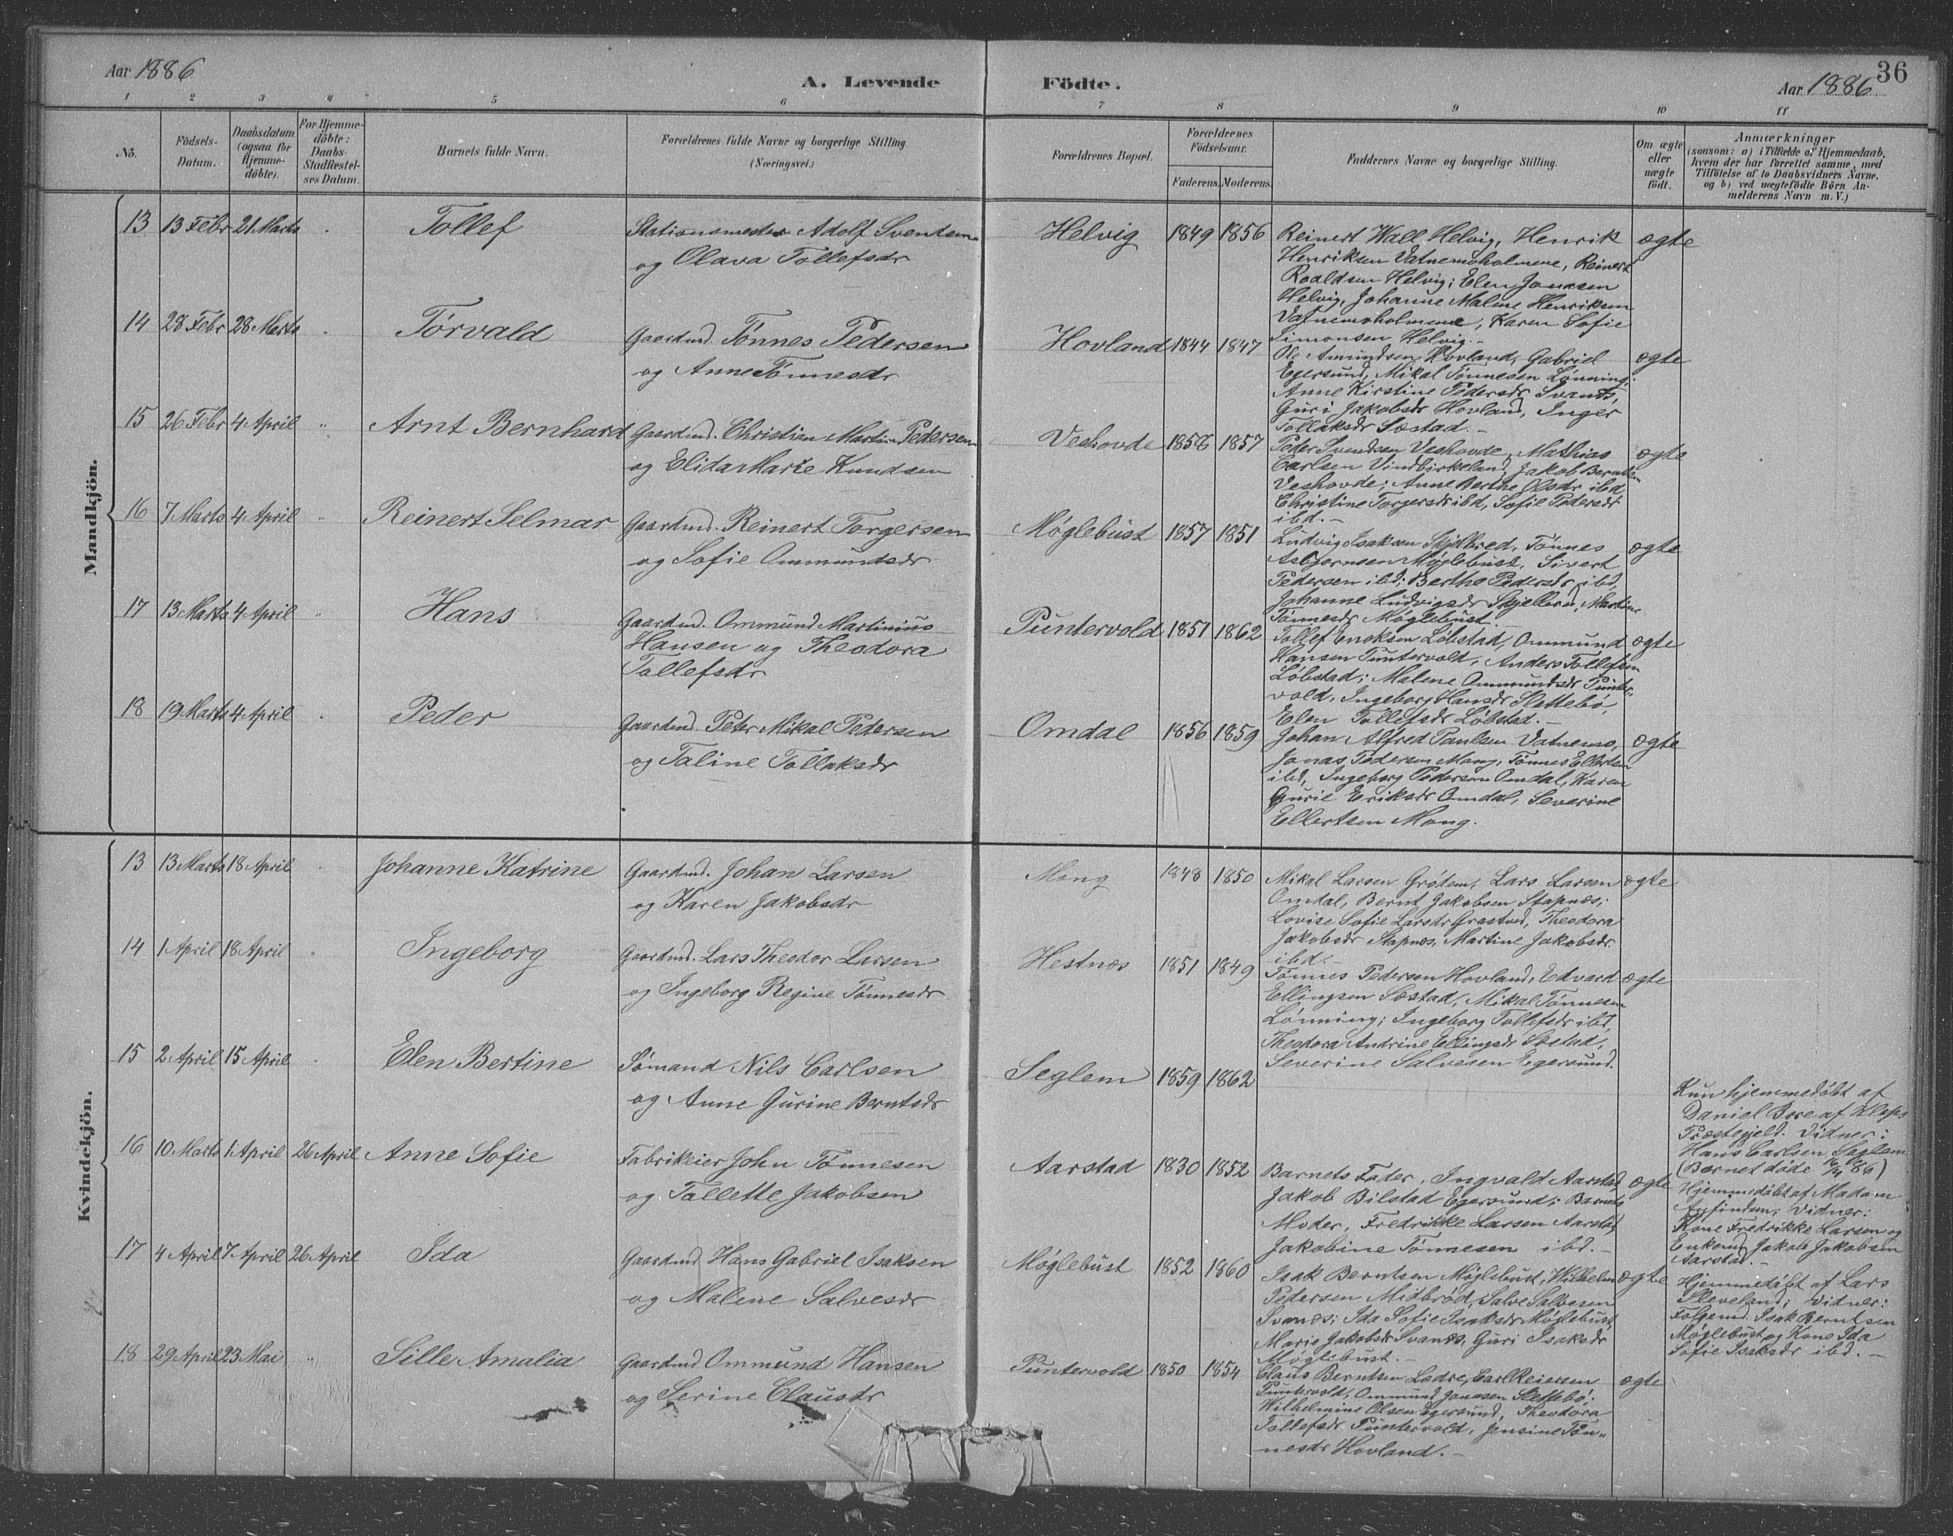 Aar 1886
A. Levende Födte.
Aar 1886
36
1 2 3 4 5 6 7 8 9 10 11
No.
Födsels-
Datum.
Daabsdatum
(ogsaa for
Hjemme-
döbte).
For Hjemme-
döbte:
Daabs-
Stadfæstel-
ses Datum.
Barnets fulde Navn.
Forældrenes fulde Navne og borgerlige Stilling.
(Næringsvei.)
Forældrenes Bopæl.
Forældrenes
Födselsaar.
Faderens. Moderens.
Faddernes Navne og borgerlige Stilling.
Om ægte
eller
uægte
födt.
Anmærkninger
(saasom: a) i Tilfælde af Hjemmedaab,
hvem der har forrettet samme, med
Tilföielse af to Daabsvidners Navne,
og b) ved uægtefödte Börn An-
melderens Navn m. V.)
Mandkjön.
13 13 Febr 21 Marts " Tollef
Stationsmester Adolf Svendsen
og Olava Tollefsdr
Helvig 1849 1856
Reinert Wall Helvig, Henrik
Henriksen Vatnemoholmene, Reinert
Roaldsen Helvig; Elen Jonasen
Helvig, Johanne Maline Henriksen
Vatnemoholmene, Karen Sofie
Simonsen Helvig.-
ægte
14 28 Febr 28 Marts " Torvald
Gaardmd. Tønnes Pedersen
og Anne Tønnesdr
Hovland 1844 1847
Ole Amundsen Hovland, Gabriel
Egersund, Mikal Tønnesen Lønning;
Anne Kirstine Pedersdr Svanes,
Guri Jakobsdr Hovland, Inger
Tollaksdr Sæstad.-
ægte
15 26 Febr 4 April " Arnt Bernhard
Gaardmd. Christian Martin Pedersen
og Elida Marie Knudsen
Veshovde 1856 1857
Peder Svendsen Veshovde, Mathias
Carlsen Vindbirkeland, Jakob Berntsen
Veshovde; Anne Berthe Olsdr ibd,
Christine Torgersdr ibd, Sofie Pedersdr
ibd.-
ægte
16 7 Marts 4 April " Reinert Selmar
Gaardmd. Reinert Torgersen
og Sofie Ommundsdr
Møglebust 1857 1851
Ludvig Isaksen Skjelbred, Tønnes
Asbjørnsen Møglebust, Sivert
Pedersen ibd; Berthe Pedersdr ibd,
Johanne Ludvigsdr Skjelbred, Martine
Tønnesdr Møglebust.-
ægte
17 13 Marts 4 April " Hans
Gaardmd. Ommund Martinius
Hansen og Theodora
Tollefsdr
Puntervold 1851 1862
Tollef Enoksen Løbstad, Ommund
Hansen Puntervold, Anders Tollefsen
Løbstad; Malene Ommundsdr Punter-
vold, Ingeborg Hansdr Slettebø,
Elen Tollefsdr Løbstad.-
ægte
18 19 Marts 4 April " Peder
Gaardmd. Peter Mikal Pedersen
og Taline Tollaksdr
Omdal 1856 1859
Johan Alfred Paulsen Vatnemo,
Jonas Pedersen Mong, Tønnes Ellertsen
ibd, Ingeborg Pedersen Omdal, Karen
Gurie Eriksdr Omdal, Severine
Ellertsen Mong.
ægte
Kvindekjön.
13 13 Marts 18 April " Johanne Katrine
Gaardmd. Johan Larsen
og Karen Jakobsdr
Mong 1848 1850
Mikal Larsen Grøtem, Lars Larsen
Omdal, Bernt Jakobsen Stapnæs;
Lovise Sofie Larsdr Grastved, Theodora
Jakobsdr Stapnæs, Martine Jakobsdr
ibd.-
ægte
14 1 April 18 April " Ingeborg
Gaardmd. Lars Theodor Larsen
og Ingeborg Regine Tønnesdr
Hestnæs 1851 1849
Tønnes Pedersen Hovland, Edvard
Ellingsen Sæstad, Mikal Tønnesen
Lønning; Ingeborg Tollefsdr ibd,
Theodora Andrine Ellingsdr Sæstad,
Severine Salvesen Egersund.
ægte
15 2 April 15 April " Elen Bertine
Sømand Nils Carlsen
og Anne Gurine Berntsdr
Seglem 1859 1862
Kun hjemmedøbt af
Daniel Bore af Klep
Præstegjeld. Vidner:
Hans Carlsen Seglem
(Barnet døde 86)
16 10 Marts 1 April 26 April Anne Sofie
Fabrikeier John Tønnesen
og Tollette Jakobsen
Aarstad 1830 1852
Barnets Fader, Ingvald Aarstad
Jakob Bilstad Egersund; Barnets
Moder, Fredrikke Larsen Aarstad,
Jakobine Tønnesen ibd.-
ægte
Hjemmedøbt af Madam
Vidner:
Kone Fredrikke Larsen og
Enkemd Jakob Jakobsen
Aarstad.-
17 4 April 7 April 26 April Ida
Gaardmd Hans Gabriel Isaksen
og Malene Salvesdr
Møglebust 1852 1860
Isak Berntsen Møglebust, Wilhelm
Pedersen Midbrød, Salve Salvesen
Svanæs; Ida Sofie Isaksdr Møglebust,
Marie Jakobsdr Svanæs, Guri Isaksdr
Møglebust.-
ægte
Hjemmedøbt af Lars
Kleveland; Vidner:
Folgemd. Isak Berntsen
Møglebust og Kone Ida
Sofie Isaksdr ibd.-
18 29 April 23 Mai " Sille Amalia
Gaardmd Ommund Hansen
og Serine Clausdr
Puntervold 1850 1854
Claus Berntsen Ladre, Carl Reiersen
Puntervold, Ommund Jonasen Slettebø;
Wilhelmine Olsen Egersund, Theodora
Tollefsdr Puntervold, Jensine Tøn-
nesdr Hovland.-
ægte